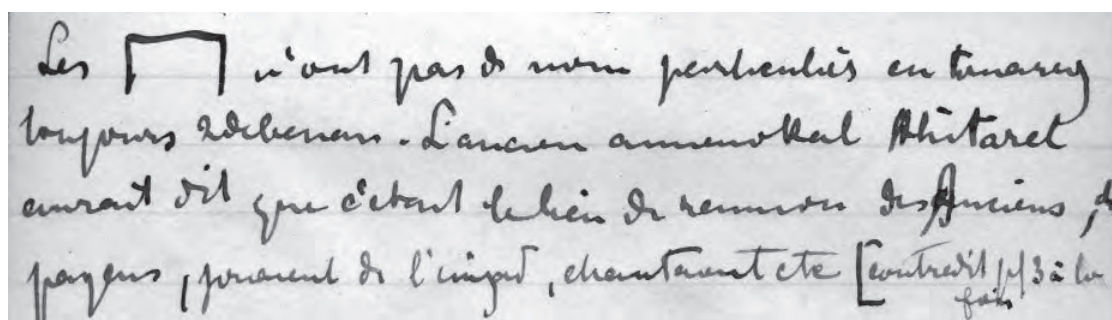 Les n'ont pas de nom particulier en touareg
toujours idebenan. L'ancien amenokal Ahitarel
aurait dit que c'était le lieu de reunion des Anciens, des
payens, jouaient de l'imzad, chantaient etc [contredit p/ 3 à la
fois